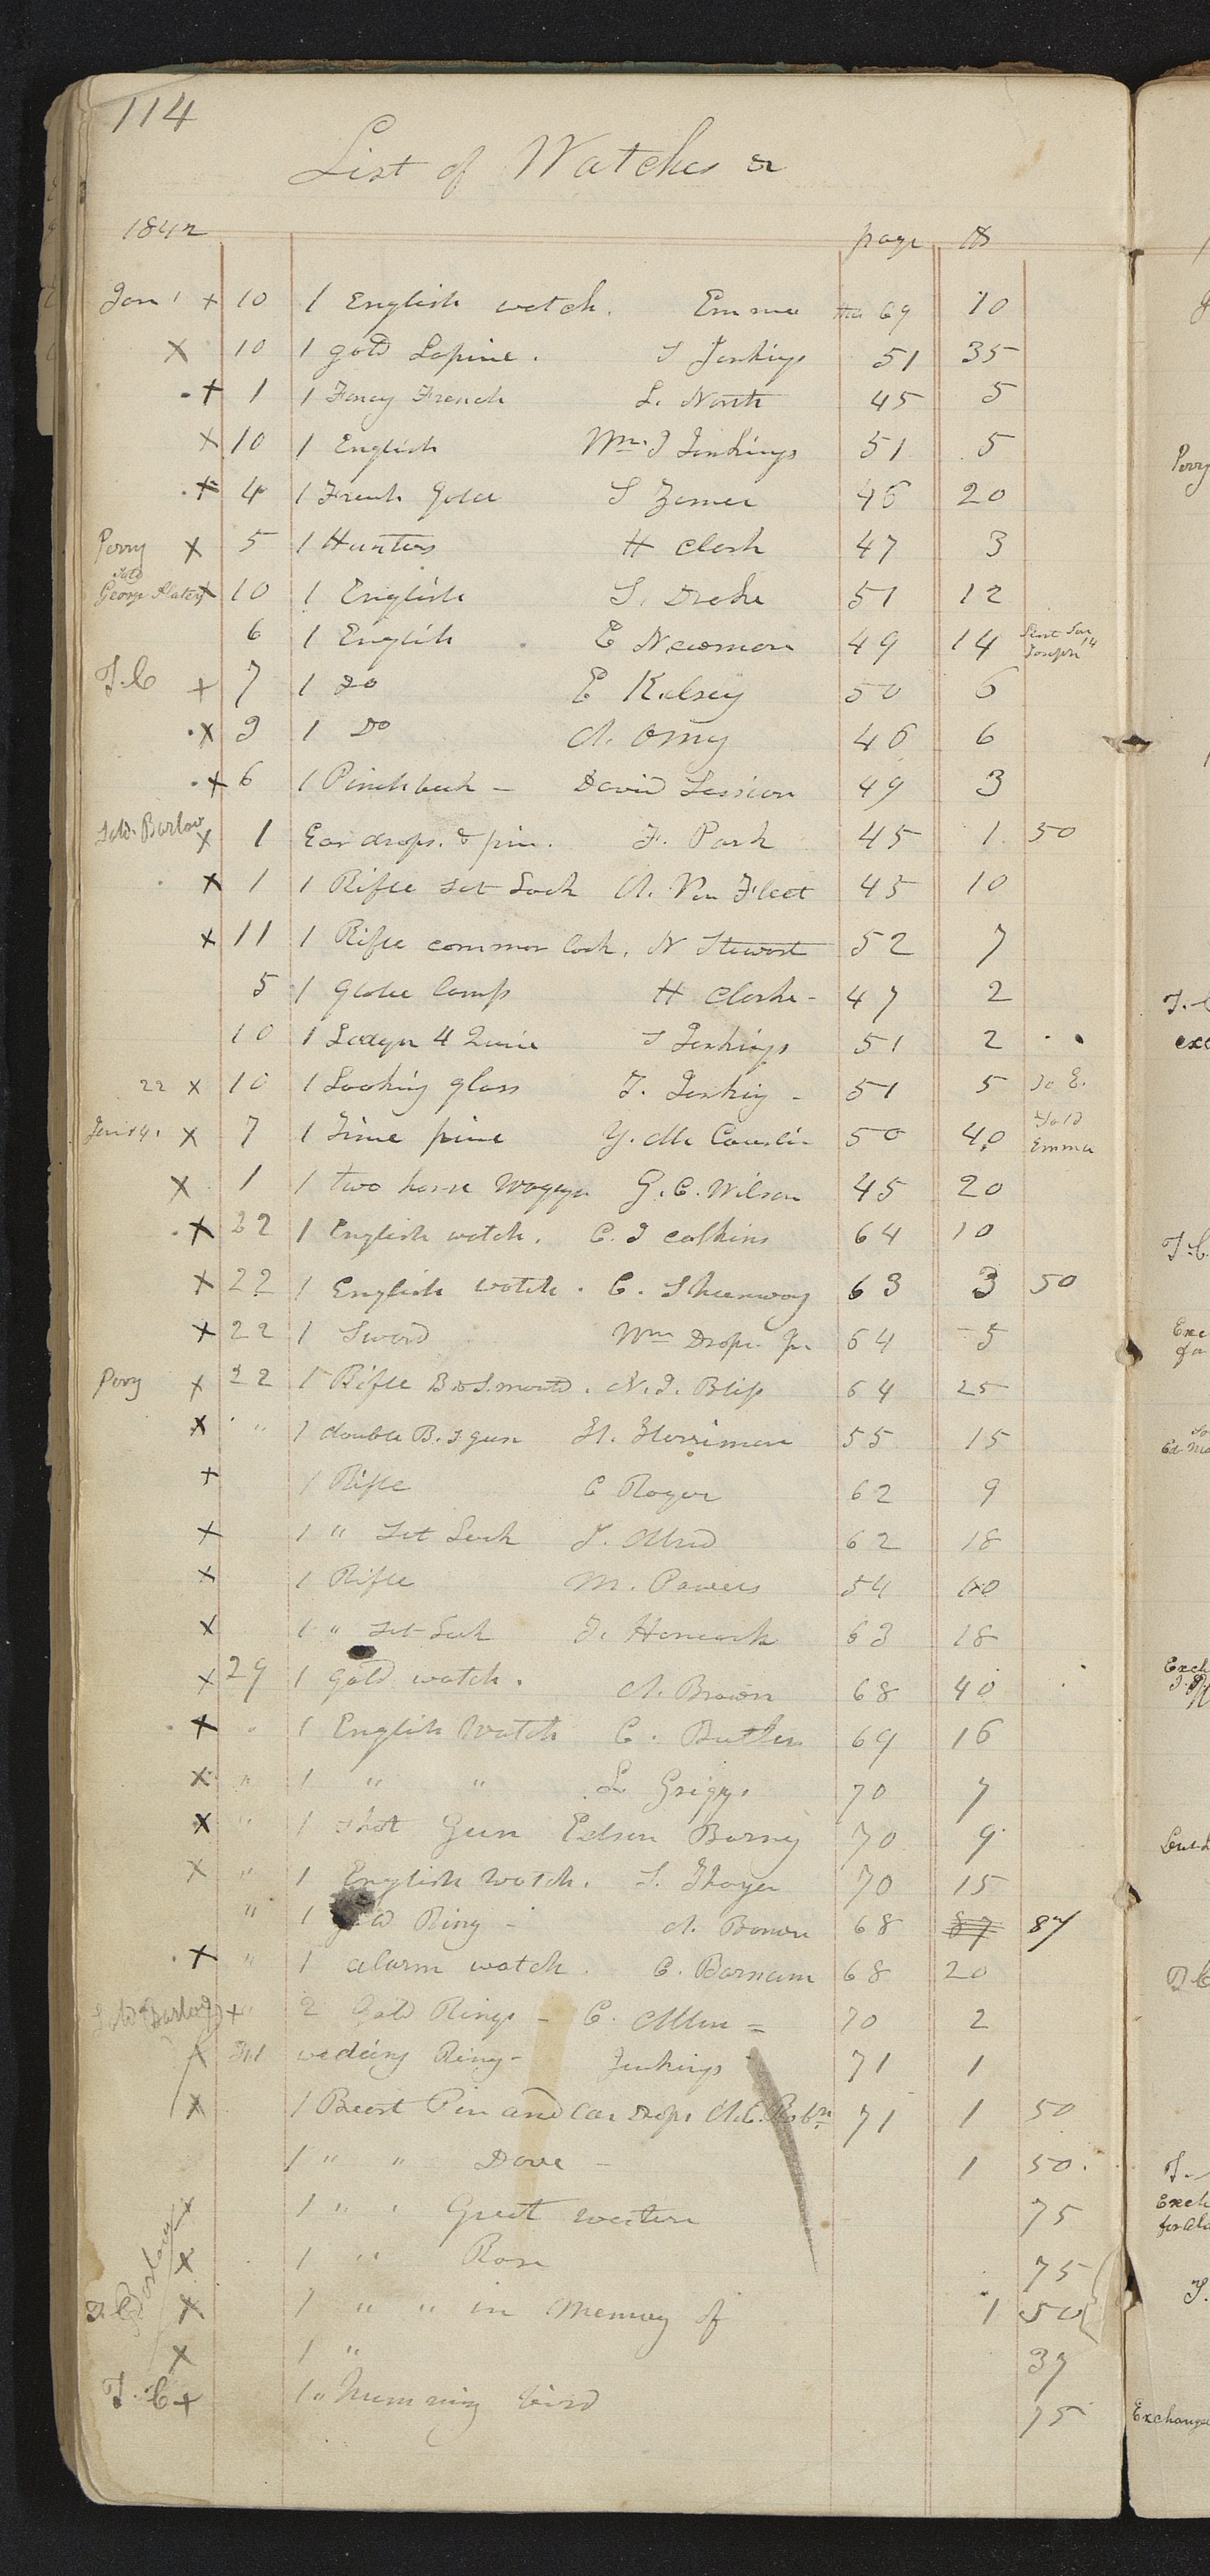 114
List of Watches &
1842 page $
Jan 1 x 10 1 English watch. Emma 69 10
x 10 1 gold Lapine. J Jenkings 51 35
x 1 1 Fancy French L. North 45 5
x 10 1 English Wm. J Jenkings 51 5
x 4 1 French Gold S 46 20
Perry x 5 1 Hunters H Clark 47 3
Sold
George x 10 1 English S. Drake 51 12
6 1 English E Newman 49 14 Sent Jan 14
Joseph
T.C x 7 1 Do E Kelsey 50 6
x 9 1 Do A. 46 6
x 6 1 Pinchbeck - David Session 49 3
Sold. Barlow x 1 Ear drops. & pin. F. Park 45 1 50
x 1 1 Rifle set Lock A. Van Fleet 45 10
x 11 1 Rifle common lock. N Stewart 52 7
5 1 Globe lamp H Clarke - 47 2
10 1 4 51 2
22 x 10 1 Looking glass J. Jenking - 51 5 To E.
x 7 1 Time piece Y. Mc 50 40 Sold
Emma
x 1 1 two horse Waggon G. C. Wilson 45 20
x 22 1 English watch. C. J Calkins 64 10
x 22 1 English watch. C. Shumway 63 3 50
x 22 1 Sword Wm Draper Jr. 64 5
Perry x 22 1 Rifle N. J. Bliss 64 25
x " 1 double B. S gun H. Herriman 55 15
x 1 Rifle C Roger 62 9
x 1 " Set Lock J. Allred 62 18
x 1 Rifle M. Powers 54 10
x 1 " Set Lock J. Hancock 63 18
x 29 1 Gold watch. A. Brown 68 40
x " 1 English Watch C. Butler 69 16
x " 1 " " L Griggs 70 7
x " 1 Shot Gun Edson Barney 70 9
x " 1 English Watch. S. Thayer 70 15
" 1 Gold Ring - A. Brown 68 87 87
x " 1 alarm watch. C. Barnum 68 20
Sold Barlow x " 2 Gold Rings - C. Allen = 70 2
x 31 wedding Ring - Jenkings 71 1
x 1 Breast Pin and Ear Drops A. C. 71 1 50
1 " " Dove - 1 50.
x 1 " " Great western 75
x 1 " Rose 75
T.C Barlow x 1 " " in Memory of 1 50
x 1 " 37
T. C x 1 " Humming bird 75